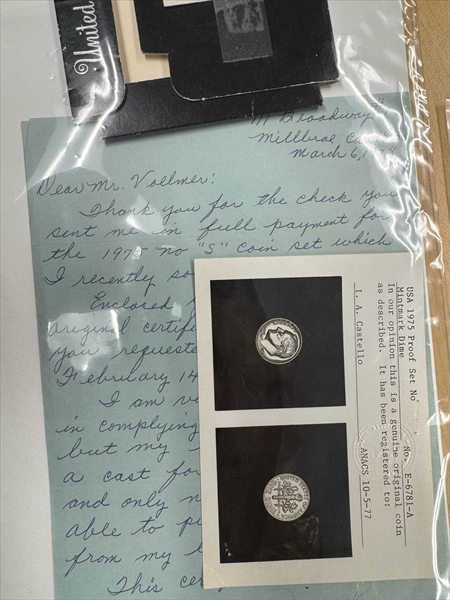 United
Broadway
Millbrae Ca
March 6, 1978
Dear Mr. Vollmer:
Thank you for the check you
sent me in full payment for
the 1975 no "S" coin set which
I recently so
Enclosed
original certif
you requeste
February 14
I am ve
in complying
but my
a cast for
and only n
able to p
from my
This cer
USA 1975 Proof Set No
Mintmark Dime
No. E-6781-A
In our opinion this is a genuine original coin
as described. It has been registered to:
I. A. Castello
ANACS 10-5-77